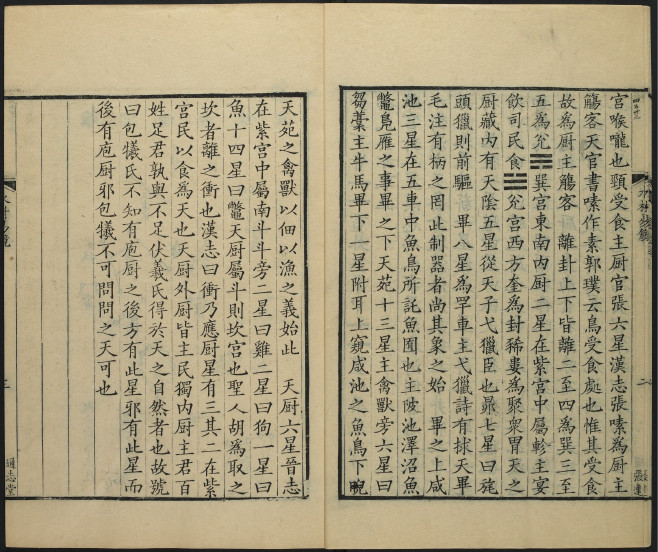 宫喉嚨也頸受食主厨官張六星漢志張嗉爲厨主
觴客天官書嗉作素郭璞云鳥受食處也惟其受食
故爲厨主觴客　離卦上下皆離二至四爲巽三至
五爲兊☱巽宫東南内厨二星在紫宫中屬軫主宴
飲司民食☴兊宫西方奎爲封豨婁爲聚衆胃天之
厨藏内有天陰五星從天子弋獵臣也昴七星曰旄
頭獵則前驅　畢八星爲罕車主弋獵詩有捄天畢
毛注有柄之罔此制器者尚其象之始　畢之上咸
池三星在五車中魚鳥所託魚囿也主陂池澤沼魚
鼈鳬雁之事畢之下天苑十三星主禽獸旁六星曰
芻藁主牛馬畢下一星附耳上窺咸池之魚鳥下睨
天苑之禽獸以佃以漁之義始此　天厨六星晉志
在紫宫中屬南斗斗旁二星曰雞二星曰狗一星曰
魚十四星曰鼈天厨屬斗則坎宫也聖人胡爲取之
坎者離之衝也漢志曰衝乃應厨星有三其二在紫
宫民以食爲天也天厨外厨皆主民獨内厨主君百
姓足君孰與不足伏羲氏得於天之自然者也故號
曰包犧氏不知有庖厨之後方有此星邪有此星而
後有庖厨邪包犧不可問問之天可也
二
三
通志堂